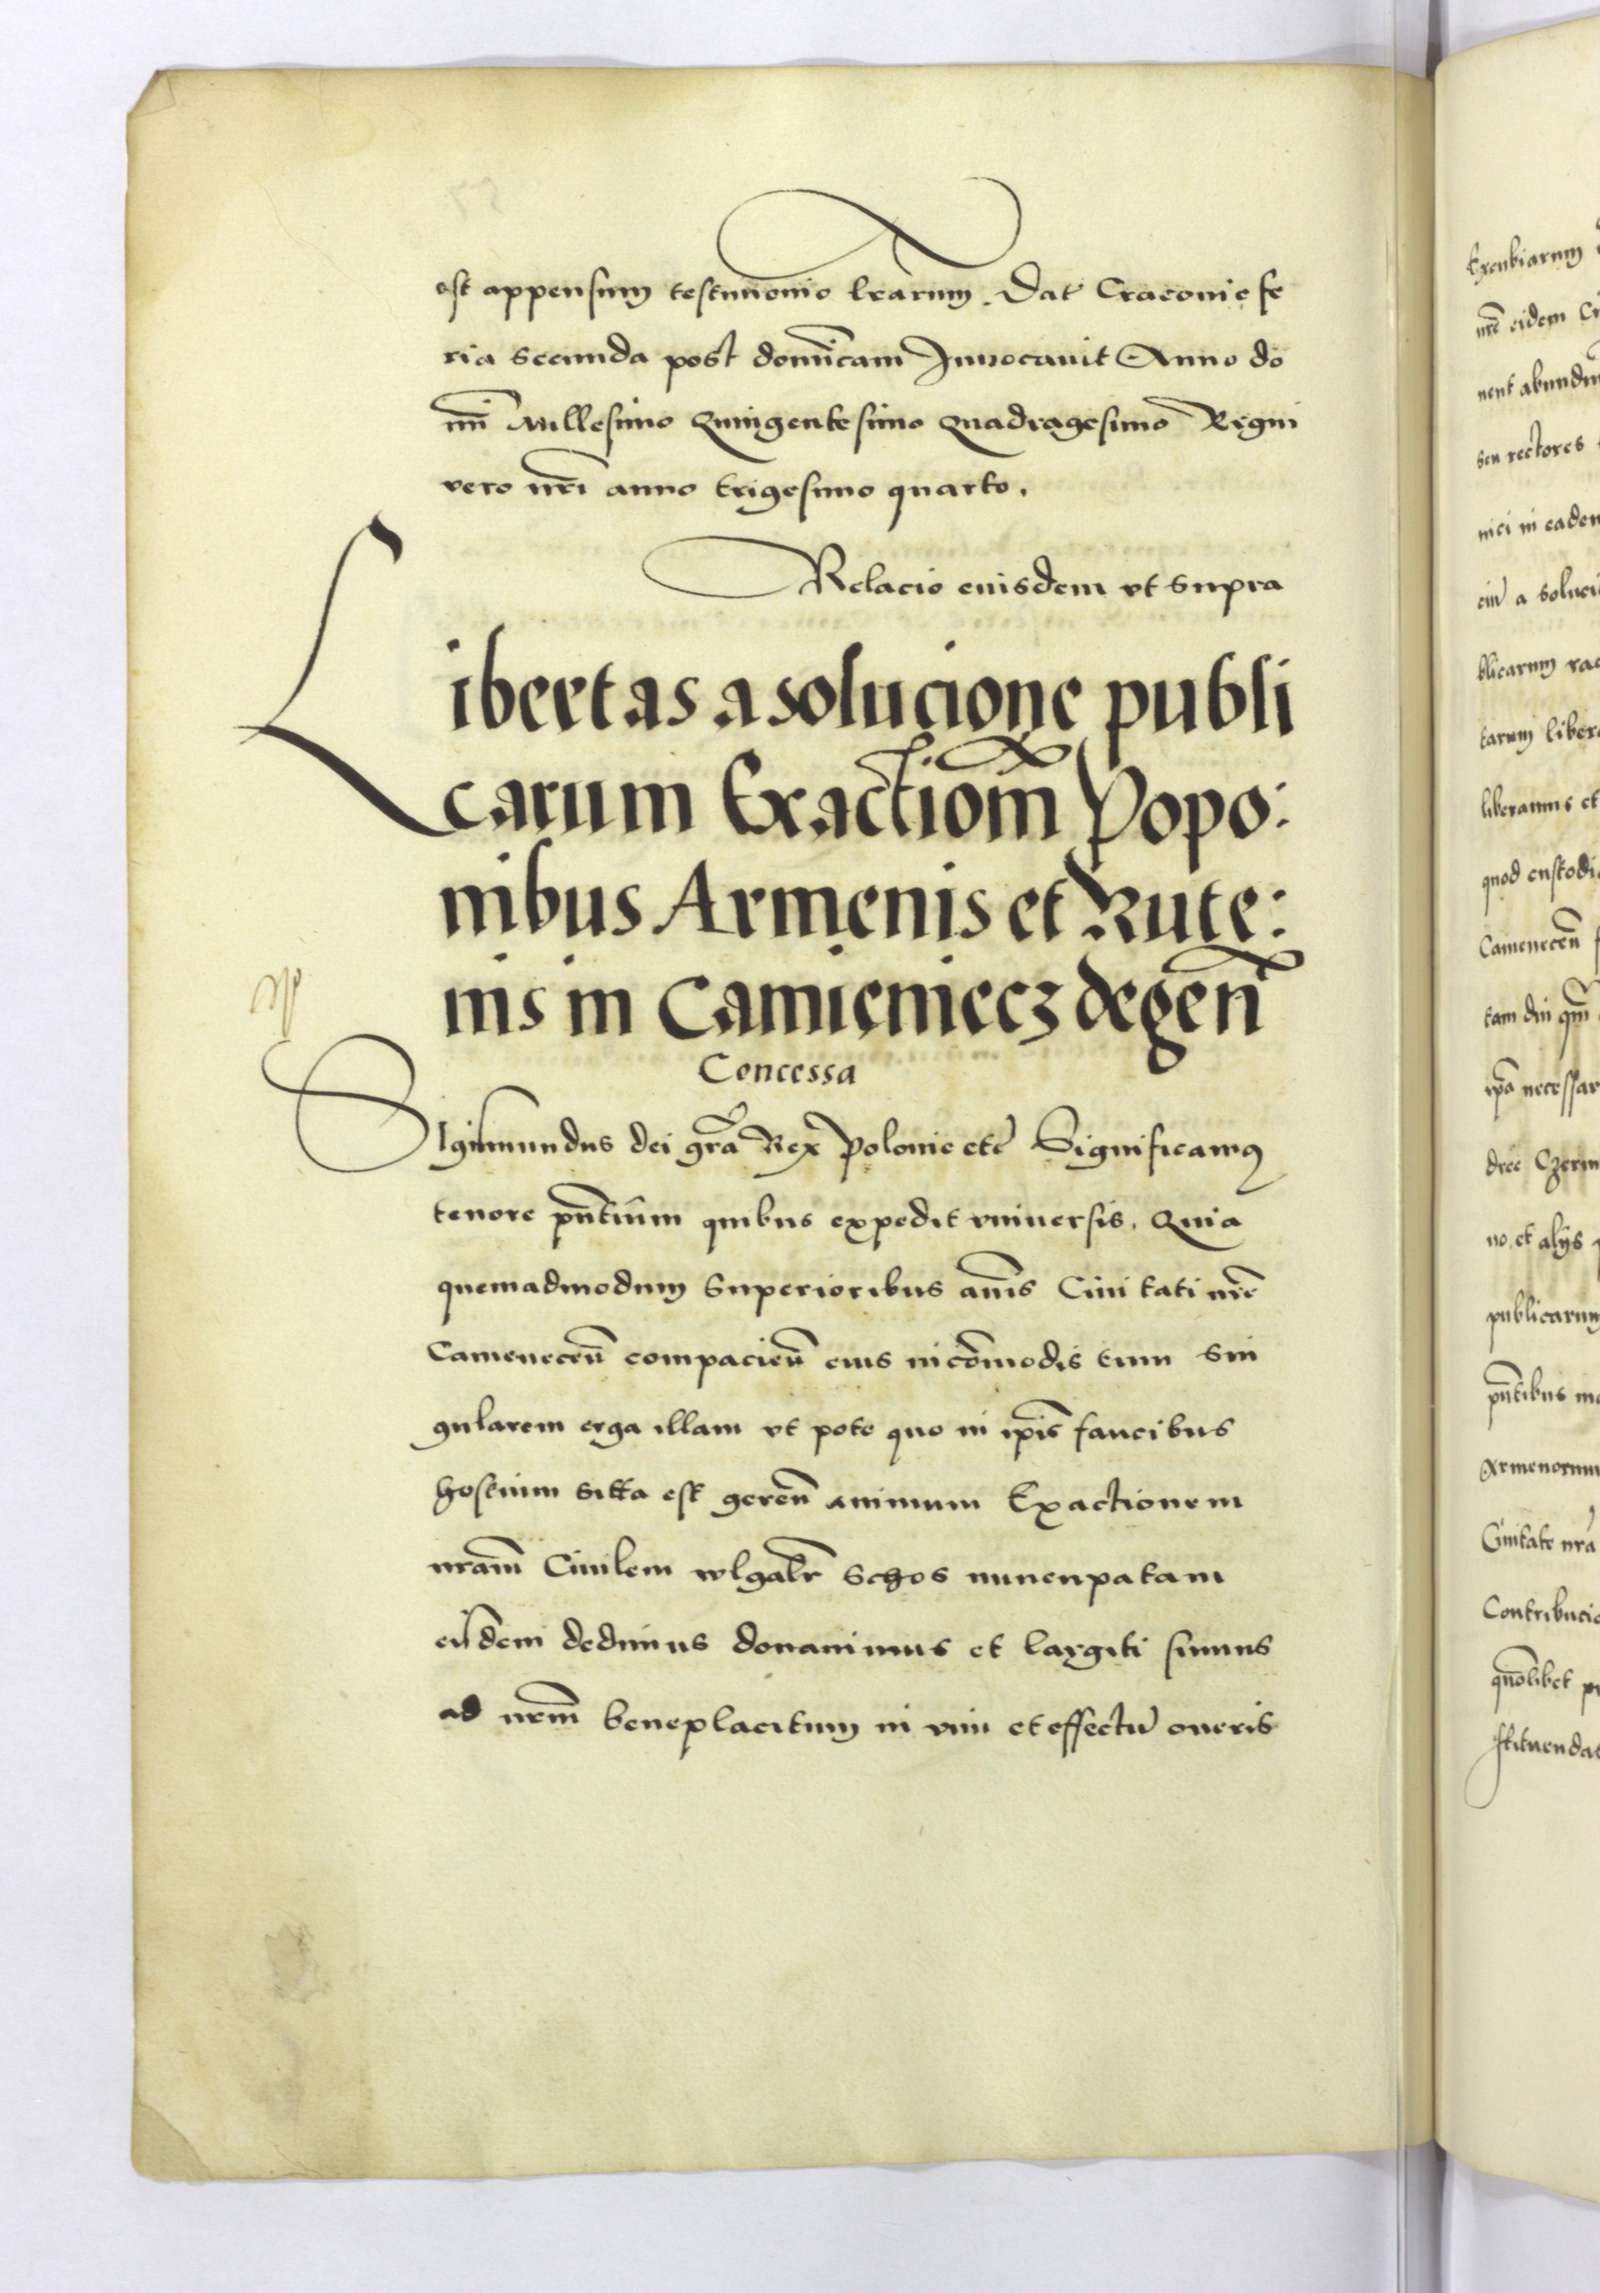 est appensum testimonio l̃rarum. Dat̃ Cracovie fe
ria secunda post dominicam Invocavit Anno do
mĩ Millesimo Quingentesimo Quadragesimo Regni
vero nr̃i anno trigesimo quarto.
Relacio eiusdem vt supra
Libertas a solucione publi
carum Exactiom̃ Popo:
nibus Armenis et Rute:
nis in Camieniecz degeñ
Concessa
Sigismundus dei gr̃a Rex Polonie etc̃ Significamus
tenore pñtium quibus expedit vniuersis. Quia
quemadmodum Superioribus annis Ciuitati nr̃e
Cameneceñ compacieñ eius incõmodis tum Sin
gularem erga illam vt pote que in ip̃is faucibus
hostium sitta est gereñ animum Exactionem
nr̃am Ciuilem wlgalr̃ Schos nuncupatam
eidem dedimus donauimus et largiti sumus
ad nr̃m beneplacitum in vim et effectũ oneris
Excubiarum
nr̃e eidem Ci
nent abundũ
seu rectores
nici in eadem
ciũ a soluci
blicarum rac
tarum liber
liberamus et
quod custodi
Cameneceñ
tam diu qm̃
ip̃a necessar
dree Czerm
no et alijs
publicarum
pñtibus
Armenorum
Ciuitate nr̃a
Contribucio
quõlibet
stituendas